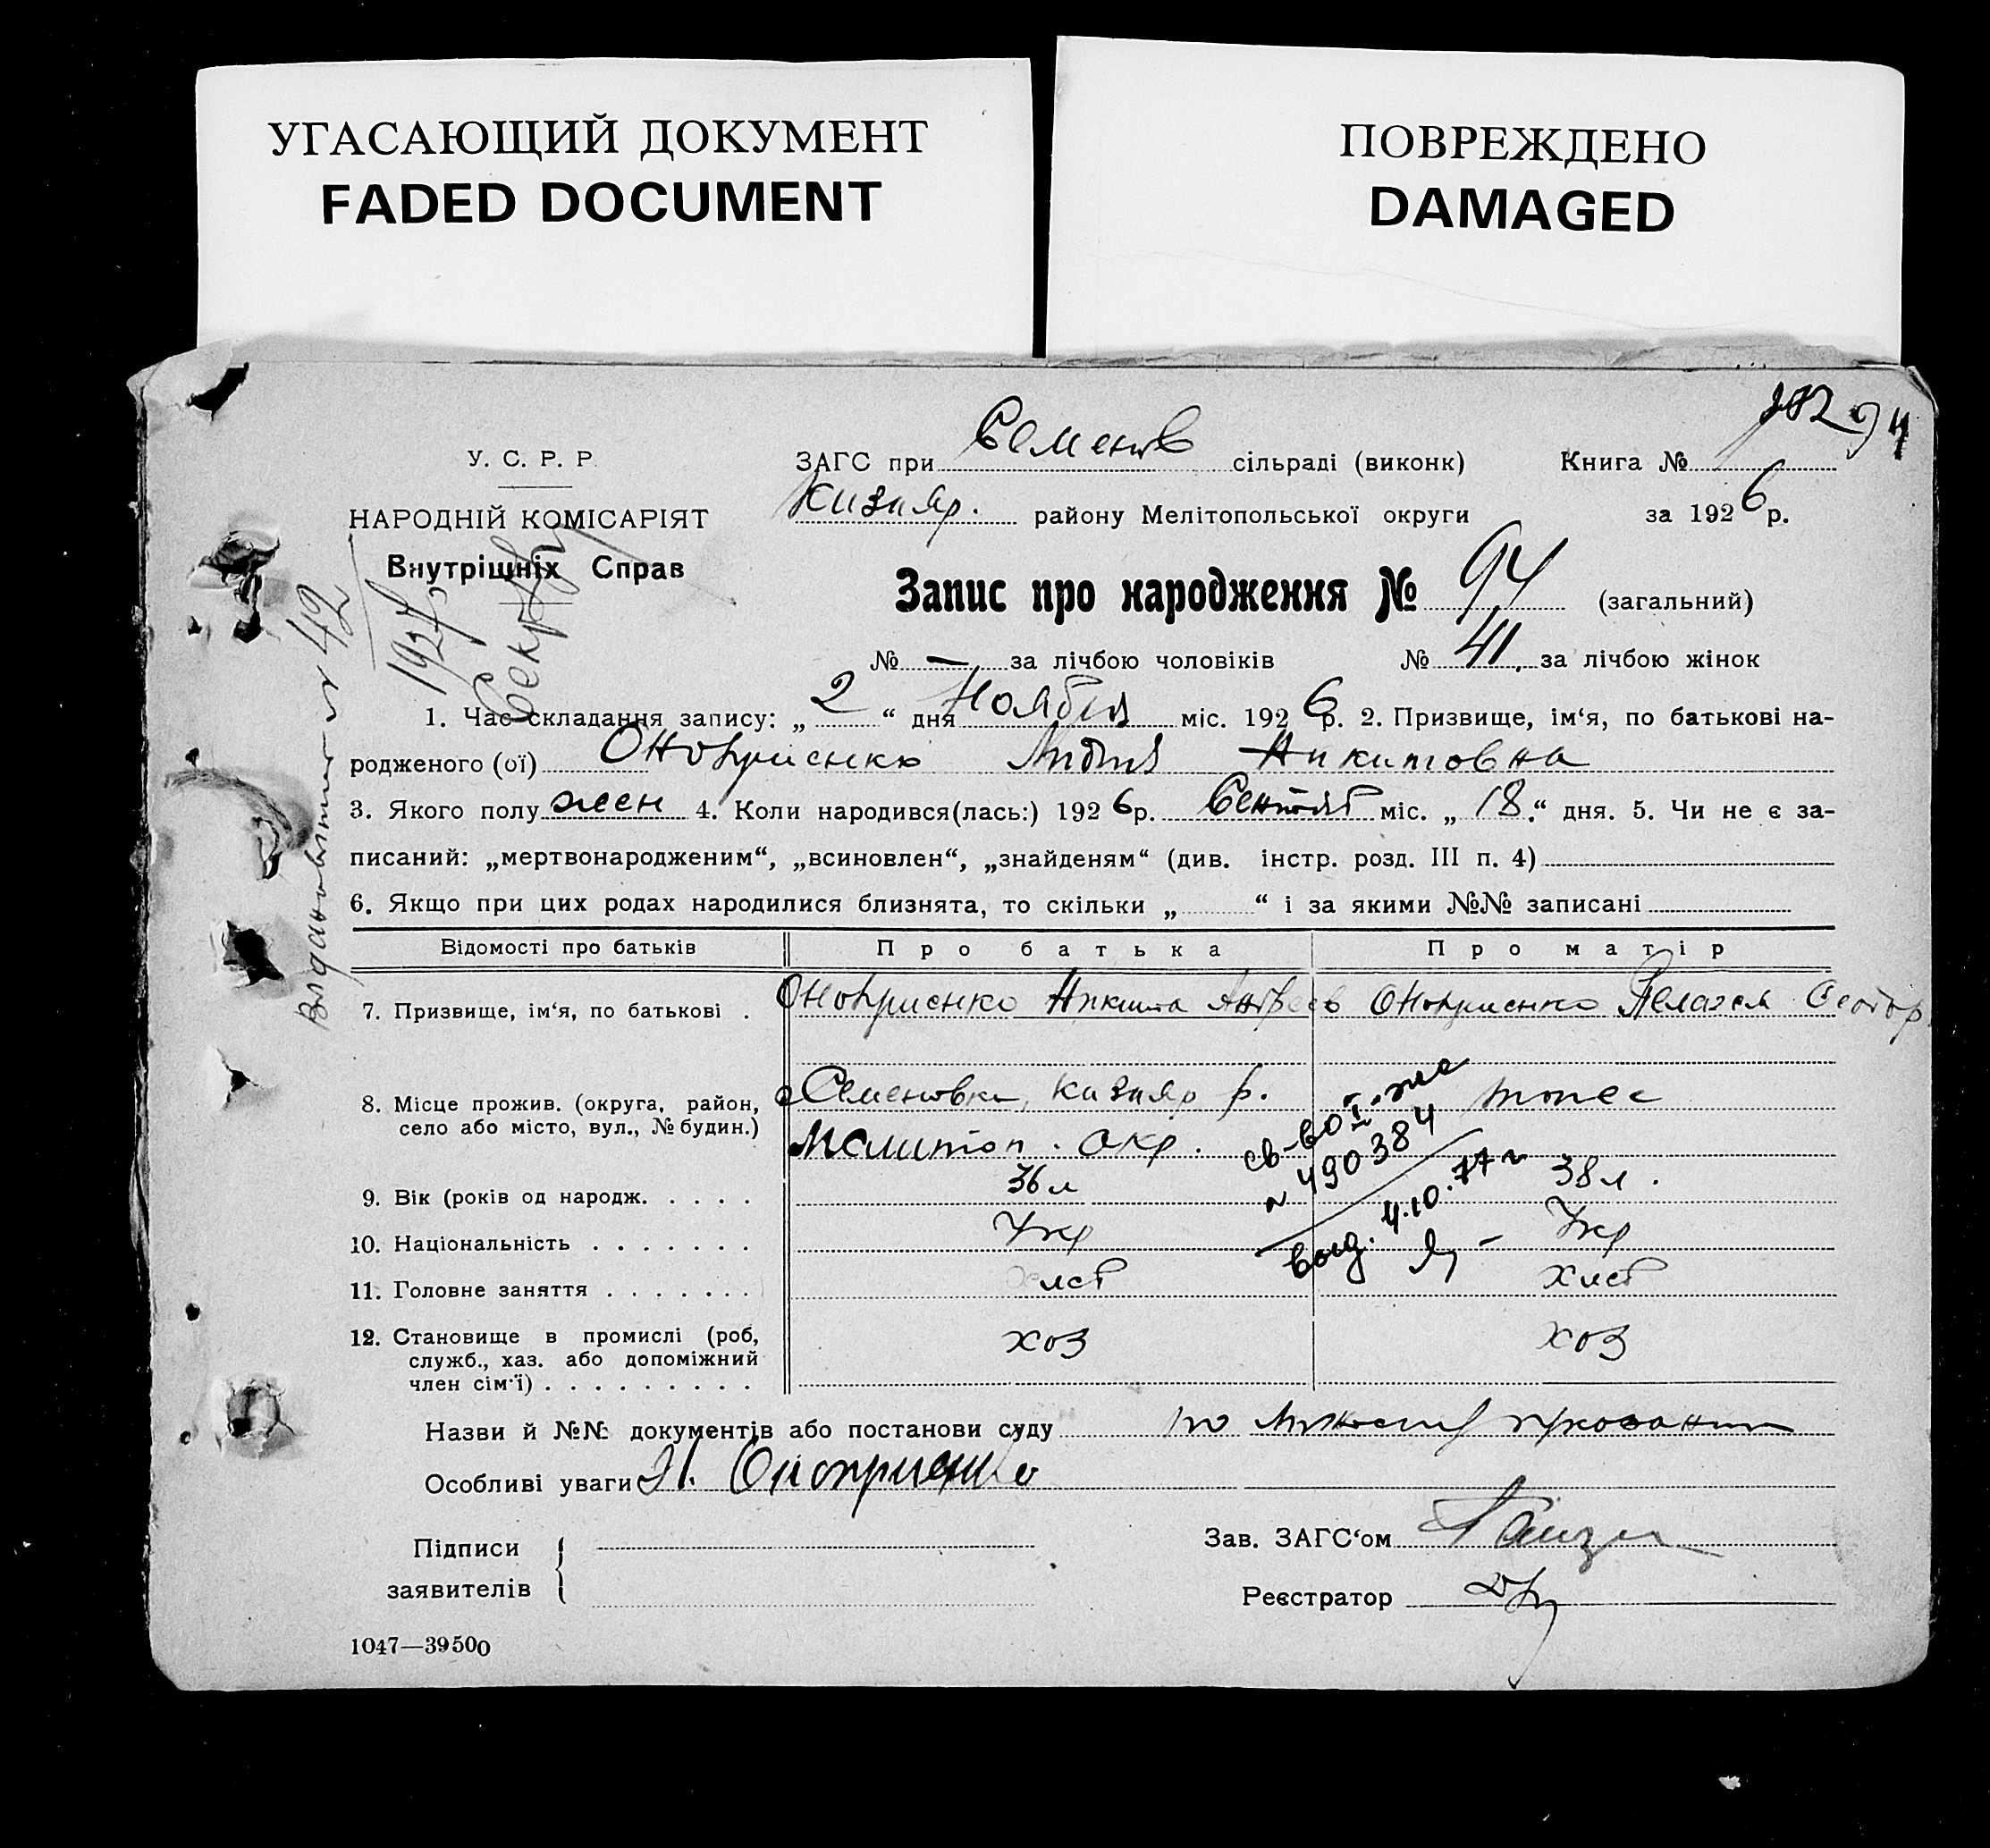 УГАСАЮЩИЙ ДОКУМЕНТ
FADED DOCUMENT
ПОВРЕЖДЕНО
DAMAGED
94
У. С. Р. Р.
ЗАГС при Семенов сільраді (виконк) Книга №
НАРОДНІЙ КОМІСАРІЯТ
Кизияр. району Мелітопольської округи за 1926 р.
Внутрішніх Справ
Запис про народження № 94 (загальний)
№ — за лічбою чоловіків № 41. за лічбою жінок
1. Час складання запису: „ 2 “ дня Ноября міс. 1926 р. 2. Призвище, ім‘я, по батькові на-
родженого (ої) Оноприенко Лидия Никитовна
3. Якого полу жен 4. Коли народився(лась:) 1926 р. Сентяб міс. „ 18 “ дня. 5. Чи не є за-
писаний: „мертвонародженим“, „всиновлен“, „знайденям“ (див. інстр. розд. III п. 4)
6. Якщо при цих родах народилися близнята, то скільки „ “ і за якими №№ записані
Відомості про батьків Про батька Про матір
7. Призвище, ім‘я, по батькові . Оноприенко Никита Андреев Оноприенко Пелагея Феодор
8. Місце прожив. (округа, район, с Семеновка, Кизияр р. тоже
село або місто, вул., № будин.) Мелитоп. окр.
9. Вік (років од народж. . . . . 36 л 38 л.
10. Національність . . . . . . . Укр Укр
11. Головне заняття . . . . . . . хлеб хлеб
12. Становище в промислі (роб, хоз хоз
служб., хаз. або допоміжний
член сім‘ї) . . . . . . . . .
св-во I-ЖС
№ 490384
выд. 4.10.77 г
Назви й №№ документів або постанови суду по личному
Особливі уваги Н. Оноприенко
Підписи
заявителів
Зав. ЗАГС‘ом
Реєстратор
1047—39500
№ 42
192